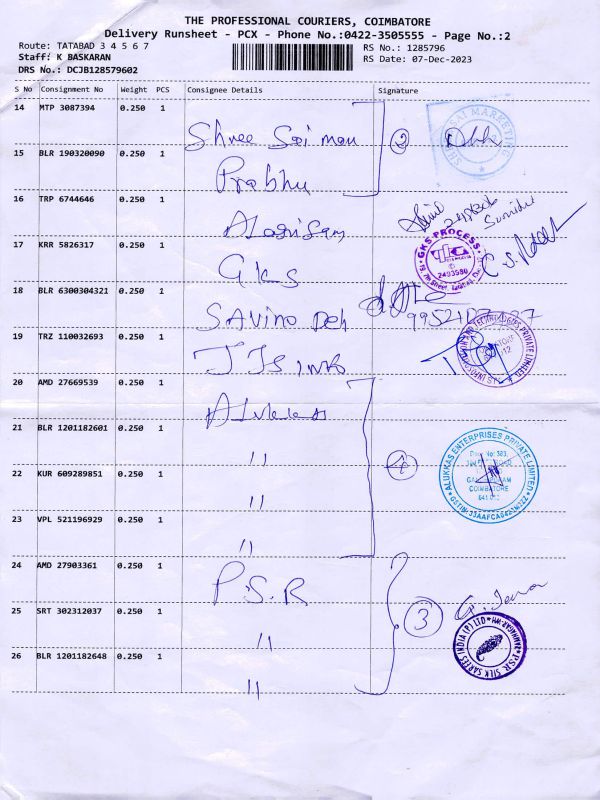 THE PROFESSIONAL COURIERS, COIMBATORE
Delivery Runsheet - PCX - Phone No.:0422-3505555 - Page No.:2
Route: TATABAD 3 4 5 6 7
RS No.: 1285796
Staff: K BASKARAN
RS Date: 07-Dec-2023
DRS No.: DCJB128579602
S No Consignment No Weight PCS Consignee Details Signature
14 MTP 3087394 0.250 1
Shree Sai man 2
15 BLR 190320090 0.250 1
Prabhu
16 TRP 6744646 0.250 1
17 KRR 5826317 0.250 1
GKS
GKS PROCESS
2493980
18 BLR 6300304321 0.250 1
SAVino Deh
19 TRZ 110032693 0.250 1
JJS info
20 AMD 27669539 0.250 1
21 BLR 1201182601 0.250 1
" 4
ALUKKAS ENTERPRISES PRIVATE LIMITED
COIMBATORE
22 KUR 609289851 0.250 1
"
23 VPL 521196929 0.250 1
"
24 AMD 27903361 0.250 1
P.S.R
25 SRT 302312037 0.250 1
" 3
P.S.R. SILK SAREES INDIA (P) LTD
26 BLR 1201182648 0.250 1
"